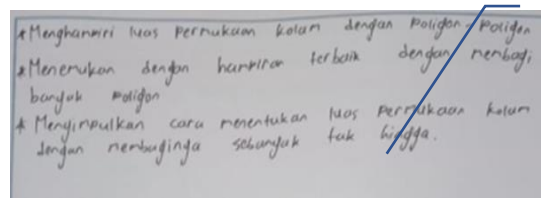 * Menghampiri luas permukaan kolam dengan Poligon-Poligon
* Menemukan dengan hampiran terbaik dengan membagi
banyak Poligon
* Menyimpulkan cara menentukan luas permukaan kolam
dengan membaginya sebanyak tak hingga.